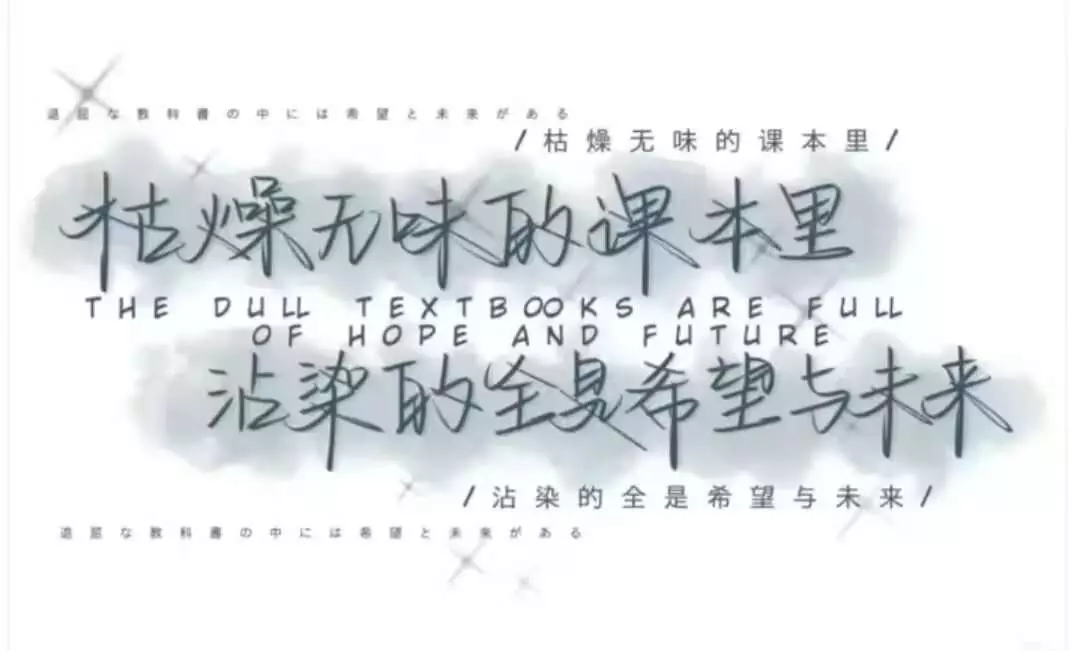 退屈な教科書の中には希望と未来がある
/枯燥无味的课本里/
枯燥无味的课本里
THE DULL TEXTBOOKS ARE FULL
OF HOPE AND FUTURE
沾染的全是希望与未来
/沾染的全是希望与未来/
退屈な教科書の中には希望と未来がある